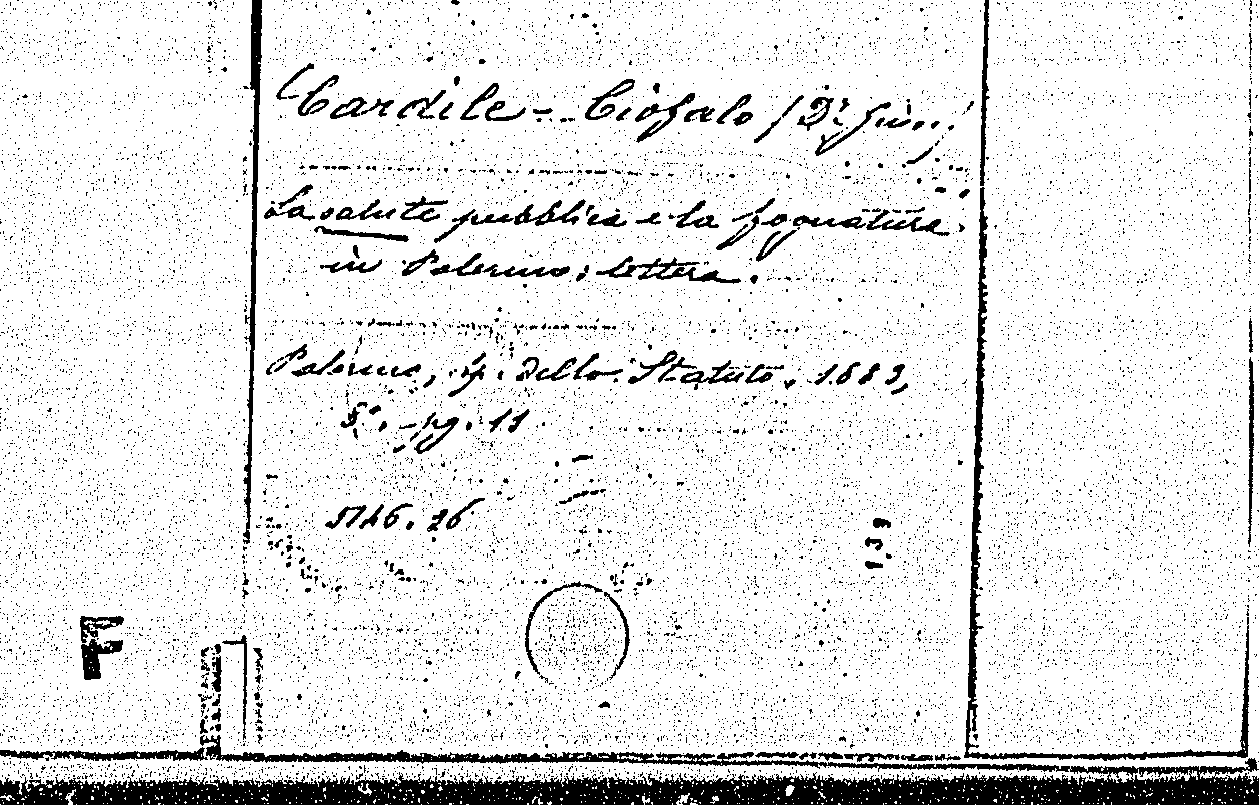 Cardile - Ciofalo (Dr. Giu.)
La salute pubblica e la fognatura
in Palermo; lettera.
Palermo, tip. dello Statuto, 1883,
8°. pg. 11
5746. 26
139
F